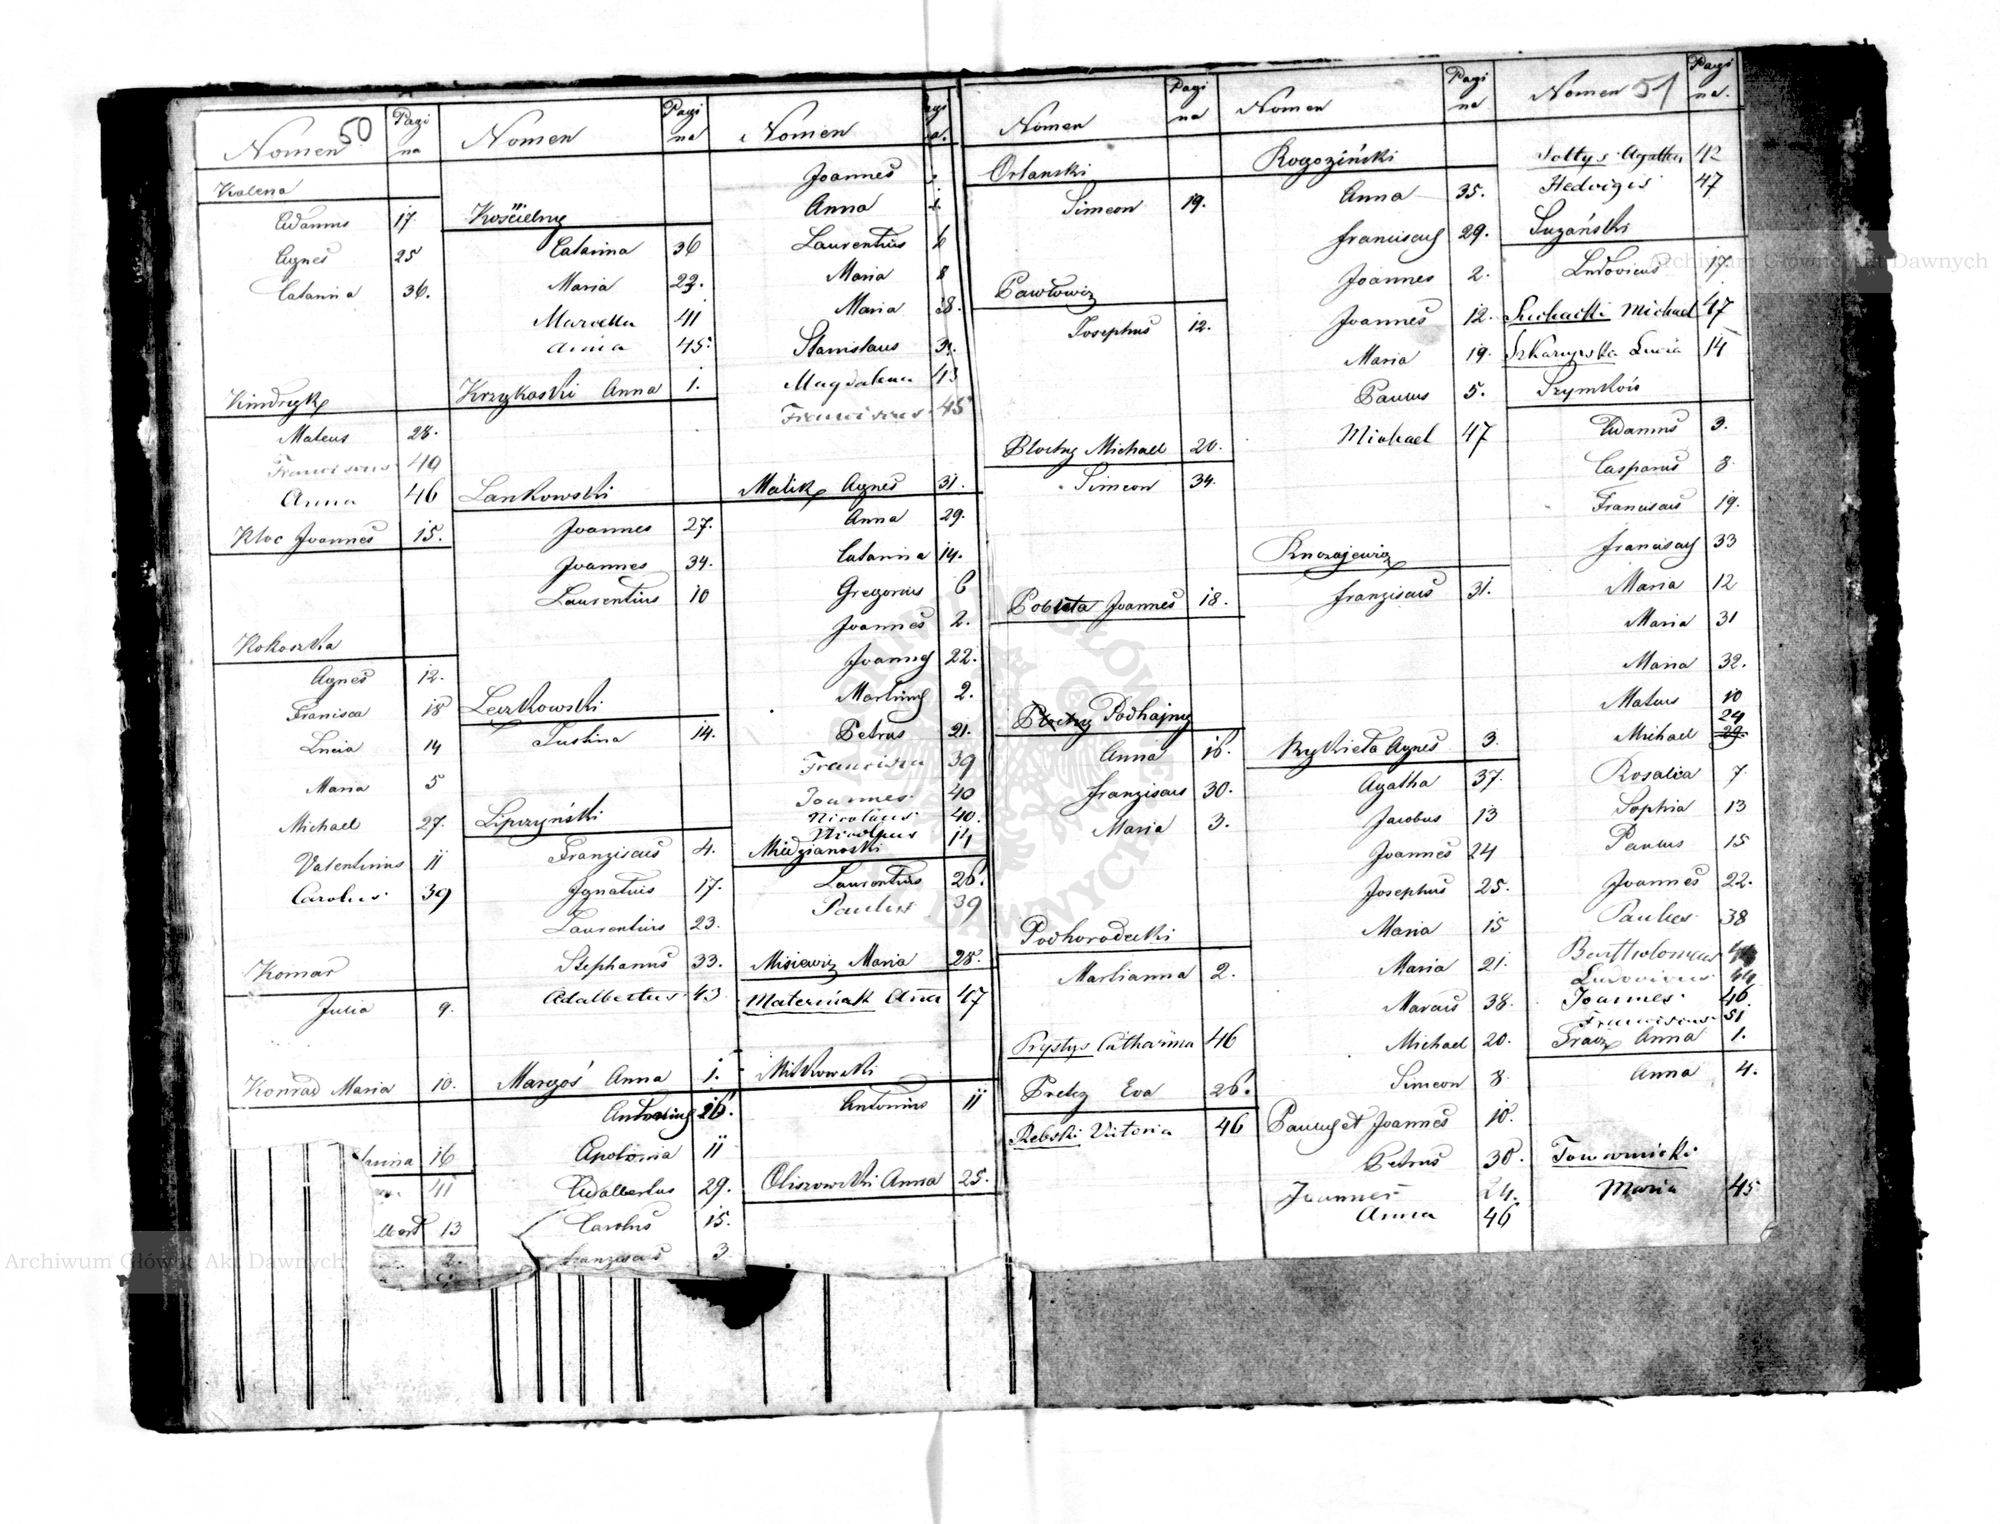 50
Nomen Pagina
Kalena
Adamus 17
Agnes 25
Catarina 36.
Kindryk
Mateus 28.
Franciscus 40
Anna 46
Kloc Joannes 15.
Kokoszka
Agnes 12.
Francisca 18
Lucia 14
Maria 5
Michael 27.
Valentinus 11
Carolus 39
Komar
Julia 9.
Konrad Maria 10.
16
41
13
2.
Nomen Pagina
Kościelny
Catarina 36
Maria 22.
Marcella 41
Anna 45
Krzykoski Anna 1.
Lankowski
Joannes 27.
Joannes 34.
Laurentius 10
Leczkowski
Justina 14.
Lipczyński
Franziscus 4.
Ignatius 17.
Laurentius 23.
Stephanus 33.
Adalbertus 43
Margoś Anna 1.
Antonius 26.
Apolonia 11
Adalbertus 29.
Carolus 15.
Franziscus 3
Nomen
Joannes
Anna
Laurentius 6
Maria 8
Maria 38.
Stanislaus
Magdalena 43
Franciscus 45
Malik Agnes 31.
Anna 29.
Catarina 14.
Gregorius 6
Joannes 2.
Joannes 22.
Martinus 2.
Petrus 21.
Francisca 39
Joannes 40
Nicolaus 40.
Nicolaus 14
Miedzianoski
Laurentius 26.
Paulus 39
Misiewicz Maria 28.
Materniak Anna 47
Mitkowski
Antonius 11
Oliszowski Anna 25.
Nomen Pagina
Orlanski
Simeon 19.
Pawlowicz
Josephus 12.
Plochy Michael 20.
Simeon 34.
Pobuta Joannes 18.
Podhajny
Anna 16.
Franziscus 30.
Maria 3.
Podhorodecki
Marlianna 2.
Prystys Catharina 46
Pretcy Eva 26.
Rebski Victoria 46
Nomen Pagina
Rogoziński
Anna 35.
Franciscus 29.
Joannes 2.
Joannes 12.
Maria 19.
Paulus 5.
Michael 47
Franziscus 31.
Rykieta Agnes 3.
Agatha 37.
Jacobus 13
Joannes 24
Josephus 25.
Maria 15
Maria 21.
Marcus 38.
Michael 20.
Simeon 8.
Paulus et Joannes 10.
Petrus 30.
Joannes 24.
Anna 46
51
Nomen Pagina.
Soltys Agatha 42
Hedvigis 47
Suzański
Ludovicus 17.
Suchacki Michael 47
Lucia 14
Szymkóis
Adamus 3.
Casparus 8.
Franciscus 19.
Franciscus 33
Maria 12
Maria 31
Maria 32.
Mateus 10
24
Michael 29.
Rosalia 7.
Sophia 13
Paulus 15
Joannes 22.
Paulus 38
Bartholomeus
Ludovicus 44
Joannes 46.
Franciscus 51
Fracz Anna 1.
Anna 4.
Towarnicki
Maria 45
Archiwum Główne Akt Dawnych
Archiwum Główne Akt Dawnych